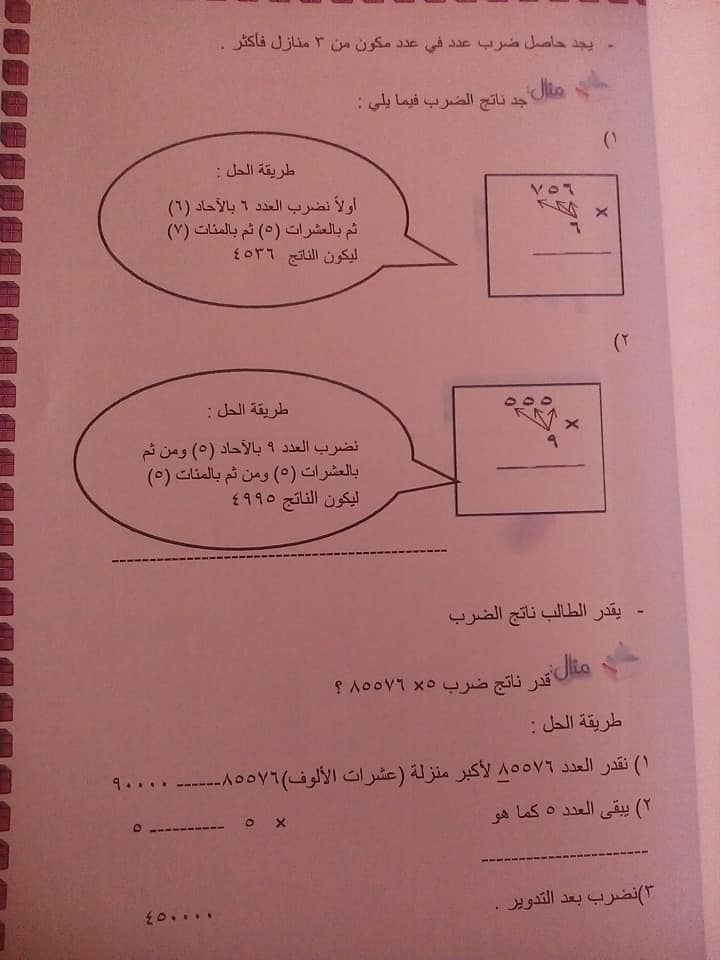 - يجد حاصل ضرب عدد في عدد مكون من ٣ منازل فأكثر .
مثال: جد ناتج الضرب فيما يلي :
١)
٧٥٦
×
٦
طريقة الحل :
أولاً نضرب العدد ٦ بالآحاد (٦)
ثم بالعشرات (٥) ثم بالمئات (٧)
ليكون الناتج ٤٥٣٦
٢)
٥٥٥
×
٩
طريقة الحل :
نضرب العدد ٩ بالآحاد (٥) ومن ثم
بالعشرات (٥) ومن ثم بالمئات (٥)
ليكون الناتج ٤٩٩٥
- يقدر الطالب ناتج الضرب
مثال: قدر ناتج ضرب ٥× ٨٥٥٧٦ ؟
طريقة الحل :
١) نقدر العدد ٨٥٥٧٦ لأكبر منزلة (عشرات الألوف)٨٥٥٧٦------ ٩٠٠٠٠
٢) يبقى العدد ٥ كما هو × ٥ ---------- ٥
٣)نضرب بعد التدوير . ٤٥٠٠٠٠